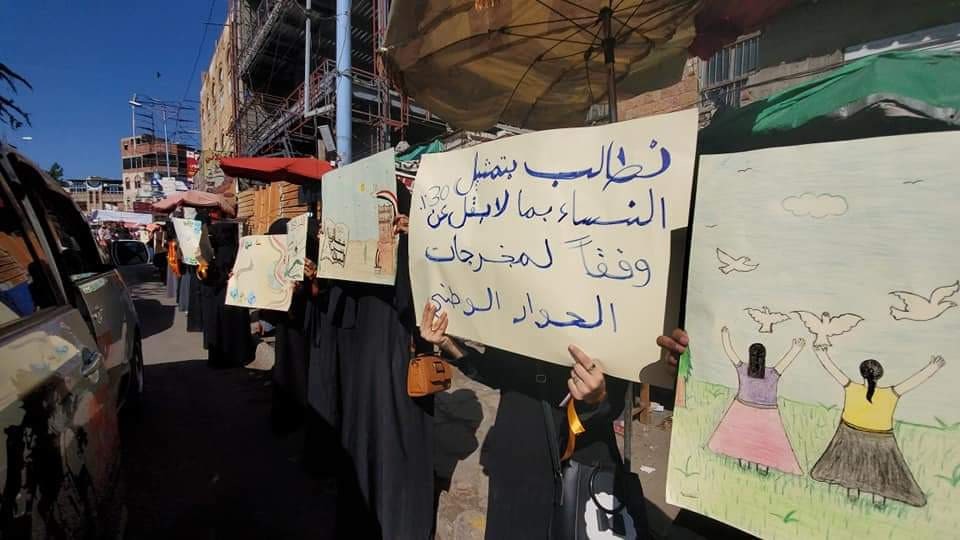 نطالب بتمثيل
النساء بما لا يقل عن 30%
وفقاً لمخرجات
الحوار الوطني